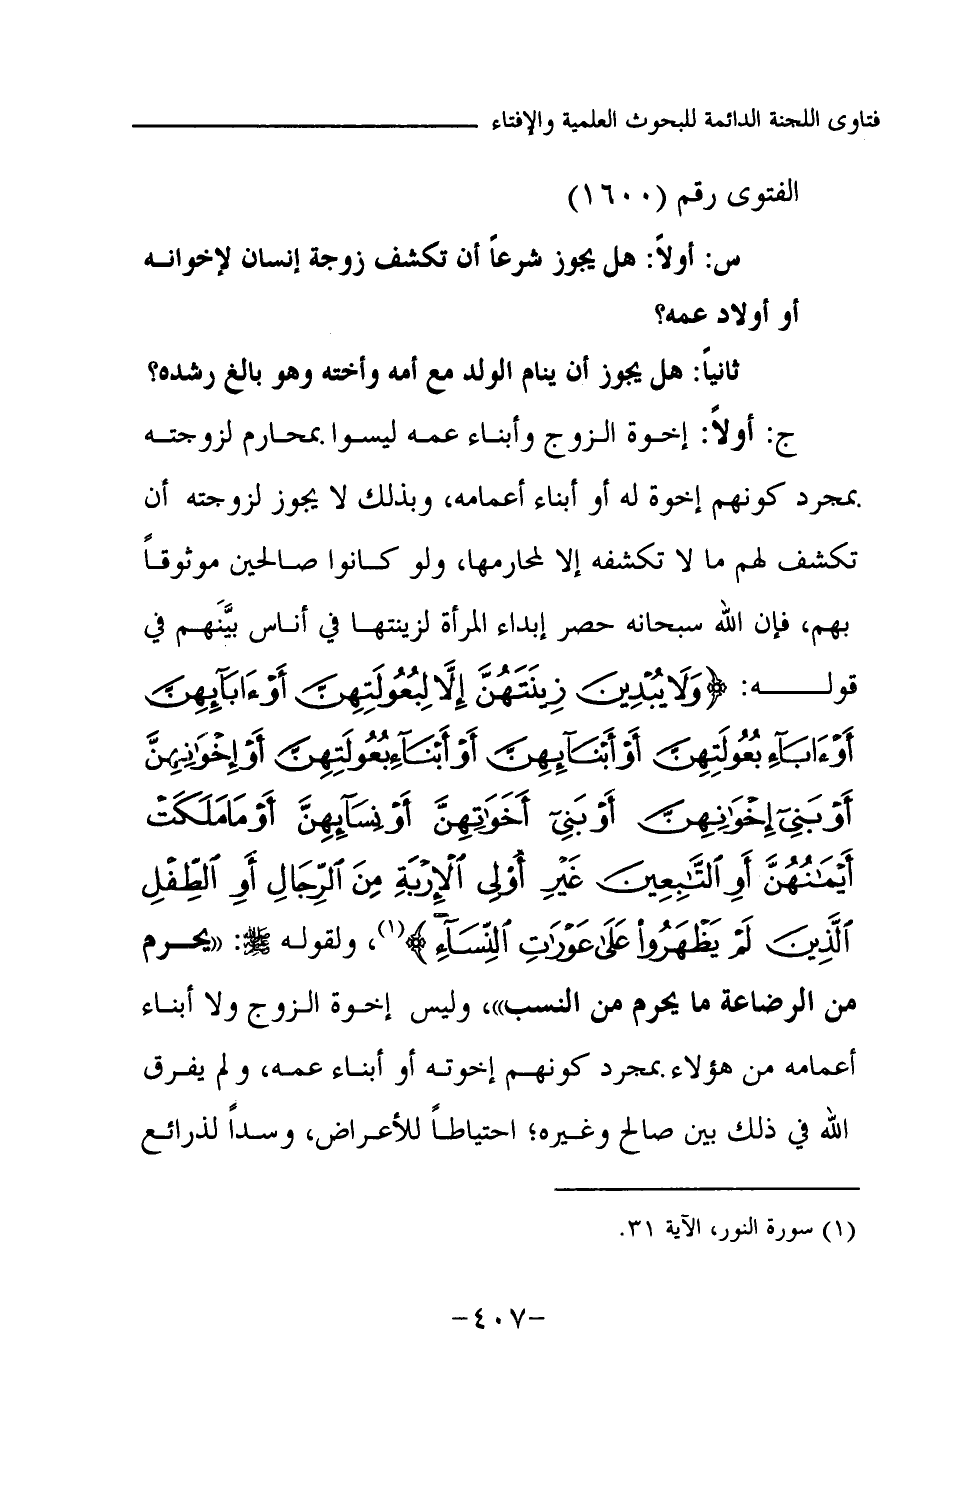 فتاوى اللجنة الدائمة للبحوث العلمية والإفتاء
الفتوى رقم (١٦٠٠)
س: أولاً: هل يجوز شرعاً أن تكشف زوجة إنسان لإخوانه
أو أولاد عمه؟
ثانياً: هل يجوز أن ينام الولد مع أمه وأخته وهو بالغ رشده؟
ج: أولاً: إخوة الزوج وأبناء عمه ليسوا بمحارم لزوجته
بمجرد كونهم إخوة له أو أبناء أعمامه، وبذلك لا يجوز لزوجته أن
تكشف لهم ما لا تكشفه إلا لمحارمها، ولو كانوا صالحين موثوقاً
بهم، فإن الله سبحانه حصر إبداء المرأة لزينتها في أناس بيَّنَهم في
قوله: ﴿وَلَا يُبْدِينَ زِينَتَهُنَّ إِلَّا لِبُعُولَتِهِنَّ أَوْ ءَابَآئِهِنَّ
أَوْ ءَابَآءِ بُعُولَتِهِنَّ أَوْ أَبْنَآئِهِنَّ أَوْ أَبْنَآءِ بُعُولَتِهِنَّ أَوْ إِخْوَٰنِهِنَّ
أَوْ بَنِىٓ إِخْوَٰنِهِنَّ أَوْ بَنِىٓ أَخَوَٰتِهِنَّ أَوْ نِسَآئِهِنَّ أَوْ مَا مَلَكَتْ
أَيْمَٰنُهُنَّ أَوِ ٱلتَّٰبِعِينَ غَيْرِ أُو۟لِى ٱلْإِرْبَةِ مِنَ ٱلرِّجَالِ أَوِ ٱلطِّفْلِ
ٱلَّذِينَ لَمْ يَظْهَرُوا۟ عَلَىٰ عَوْرَٰتِ ٱلنِّسَآءِ﴾(١)، ولقوله ﷺ: «يحرم
من الرضاعة ما يحرم من النسب»، وليس إخوة الزوج ولا أبناء
أعمامه من هؤلاء بمجرد كونهم إخوته أو أبناء عمه، ولم يفرق
الله في ذلك بين صالح وغيره؛ احتياطاً للأعراض، وسداً لذرائع
(١) سورة النور، الآية ٣١.
-٤٠٧-